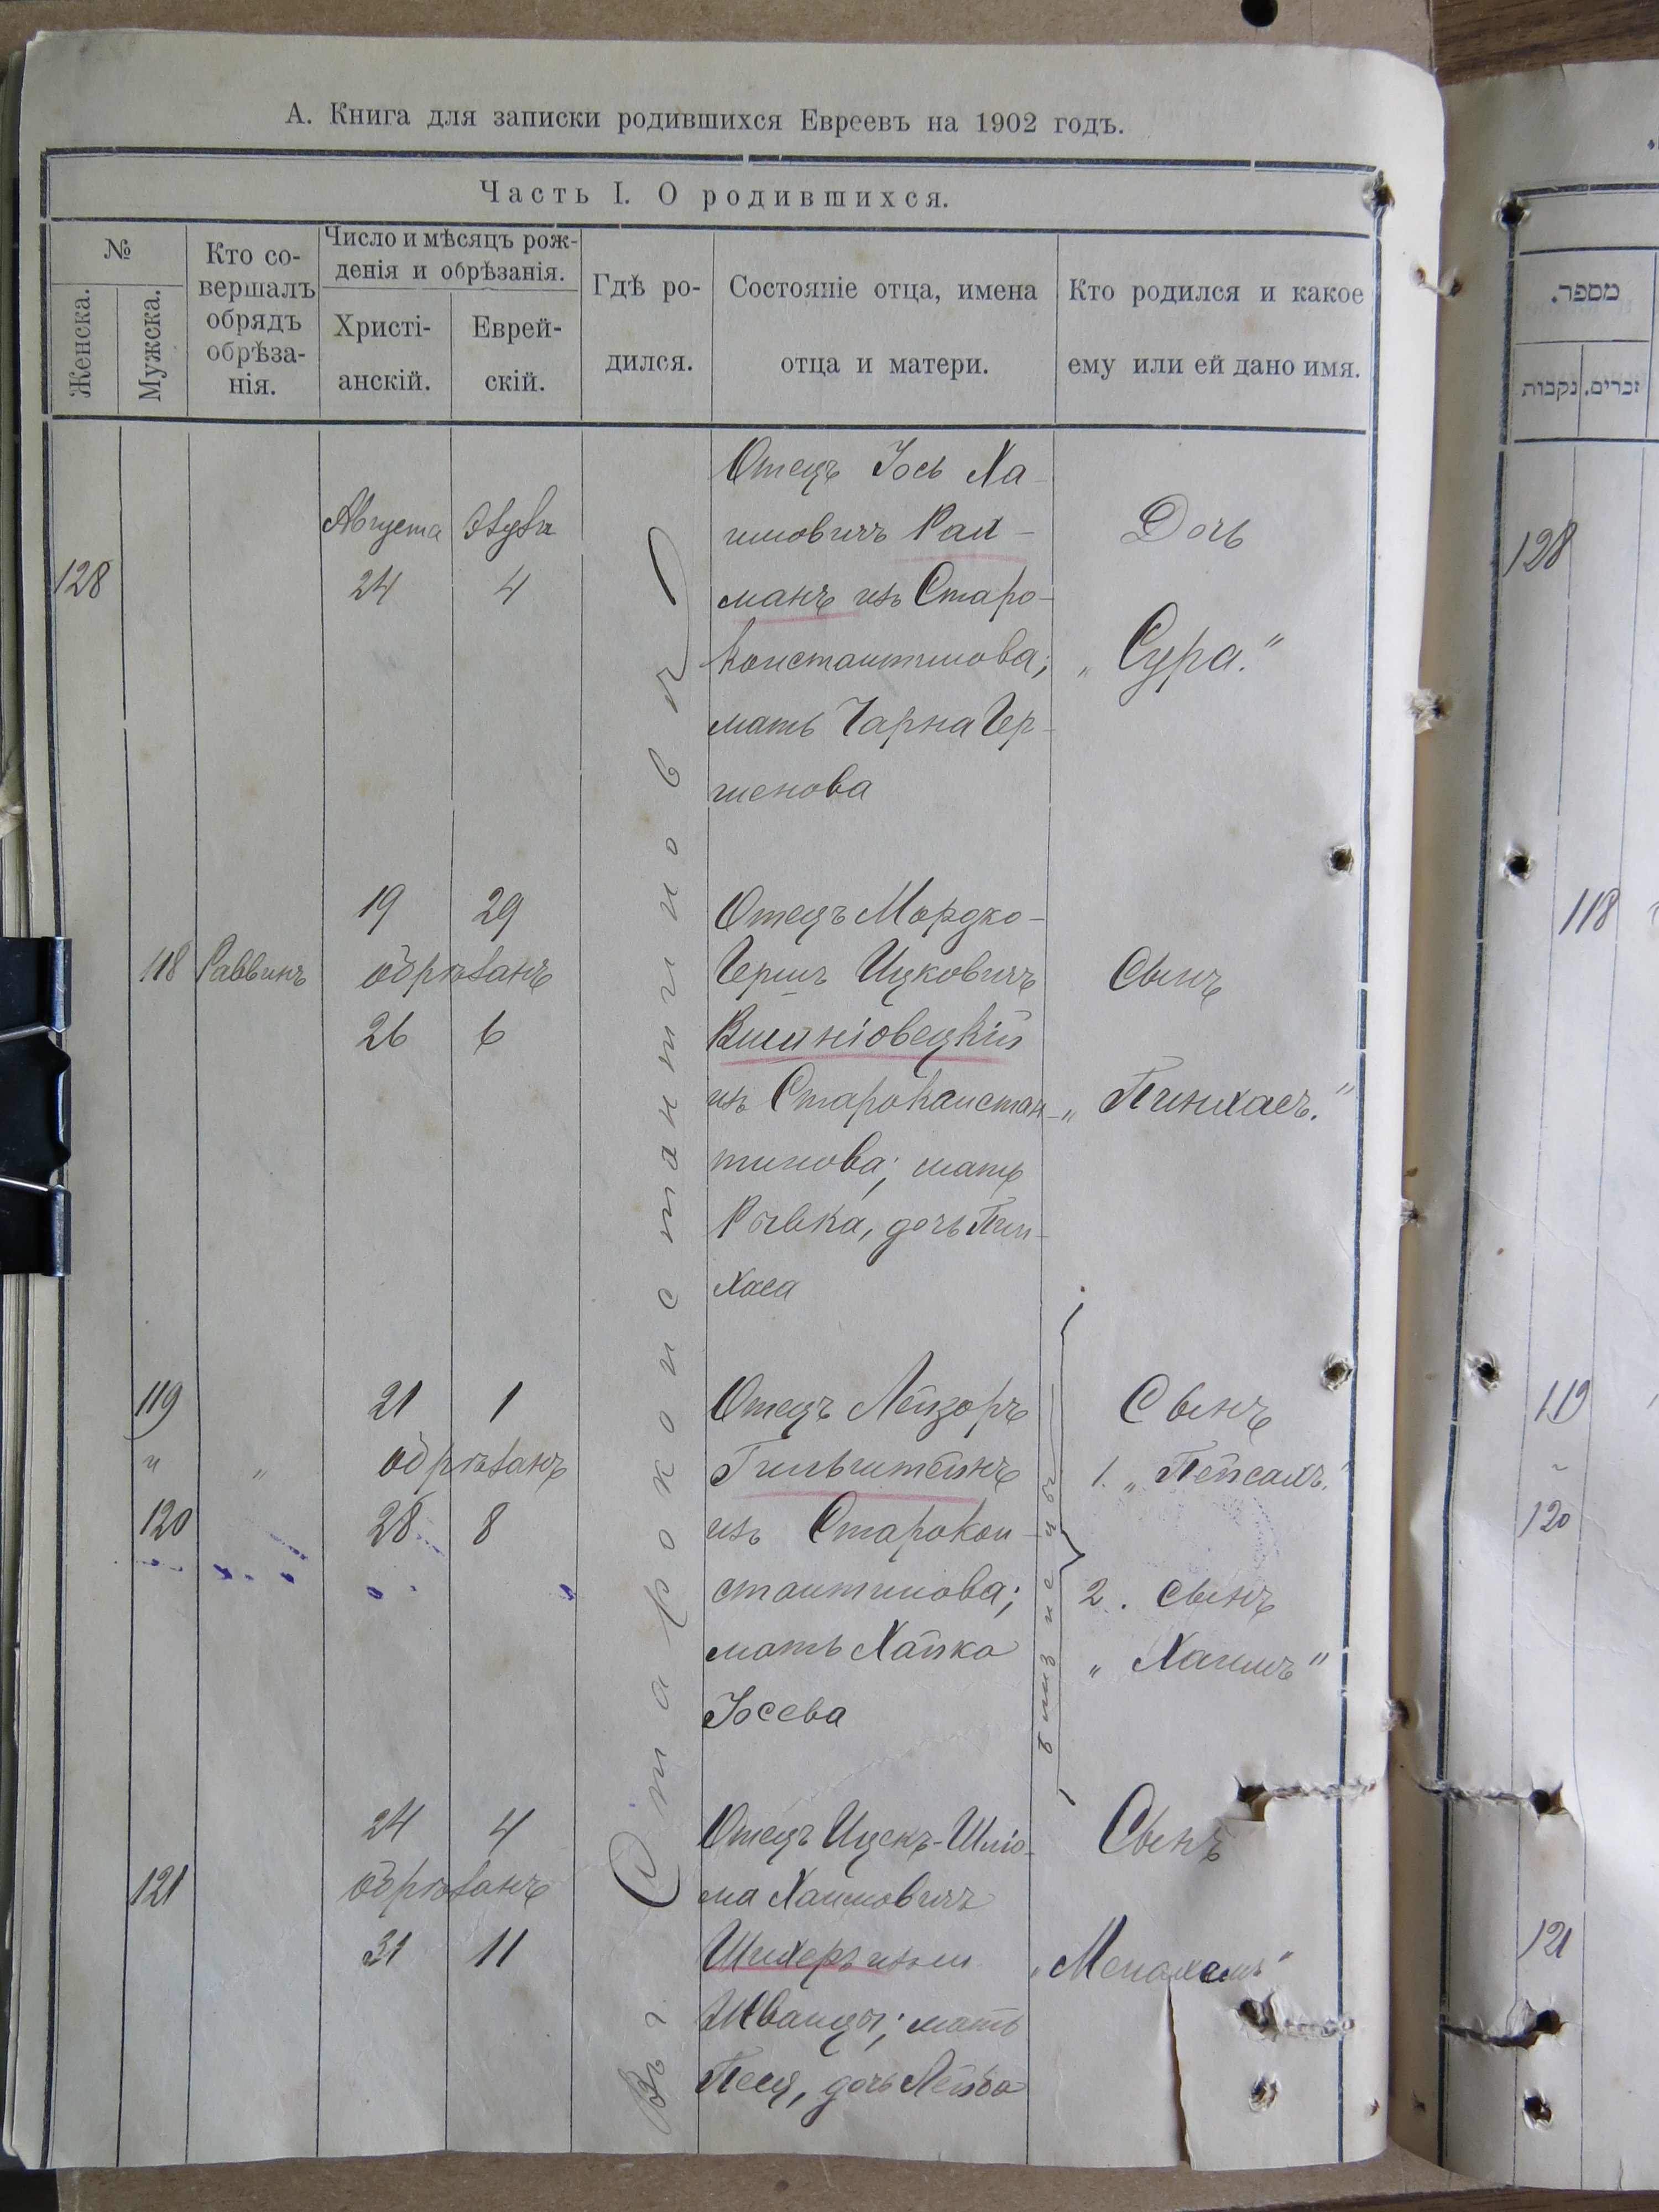 А. Книга для записки родившихся Евреевъ на 1902 годъ.
Часть I. О родившихся.
№
Женска.
Мужска.
Кто со-
вершалъ
обрядъ
обрѣза-
нія.
Число и мѣсяцъ рож-
денія и обрѣзанія.
Христі-
анскій.
Еврей-
скій.
Гдѣ ро-
дился.
Состояніе отца, имена
отца и матери.
Кто родился и какое
ему или ей дано имя.
מספר.
נקבות
זכרים.
Въ г. Староконстантиновѣ
128
Августа
24
4
Отецъ Іось Ха
имовичъ
манъ изъ Старо-
константинова;
мать Чарна Гер-
шенова
Дочь
„Сура."
128
118
Раввинъ
19 29
обрѣзанъ
26 6
Отецъ Мордко-
Гершъ Ицковичъ
Вишніовецкій
изъ Староконстан-
тинова; мать
Рывка, дочь Пин-
хаса
Сынъ
„Пинхасъ."
118
119
"
120
„
21 1
обрѣзанъ
28 8
Отецъ Лейзоръ
Гильштейнъ
изъ Старокон-
стантинова;
мать Хайка
Іосева
близнецы
Сынъ
1. „Пейсахъ."
2. Сынъ
„Хаимъ"
119
120
121
24 4
обрѣзанъ
31 11
Отецъ Ицекъ-Шлio-
ма Хаимовичъ
Шихеръ изъ м.
мать
Песя, дочь Лейба
Сынъ
„Менахемъ"
121